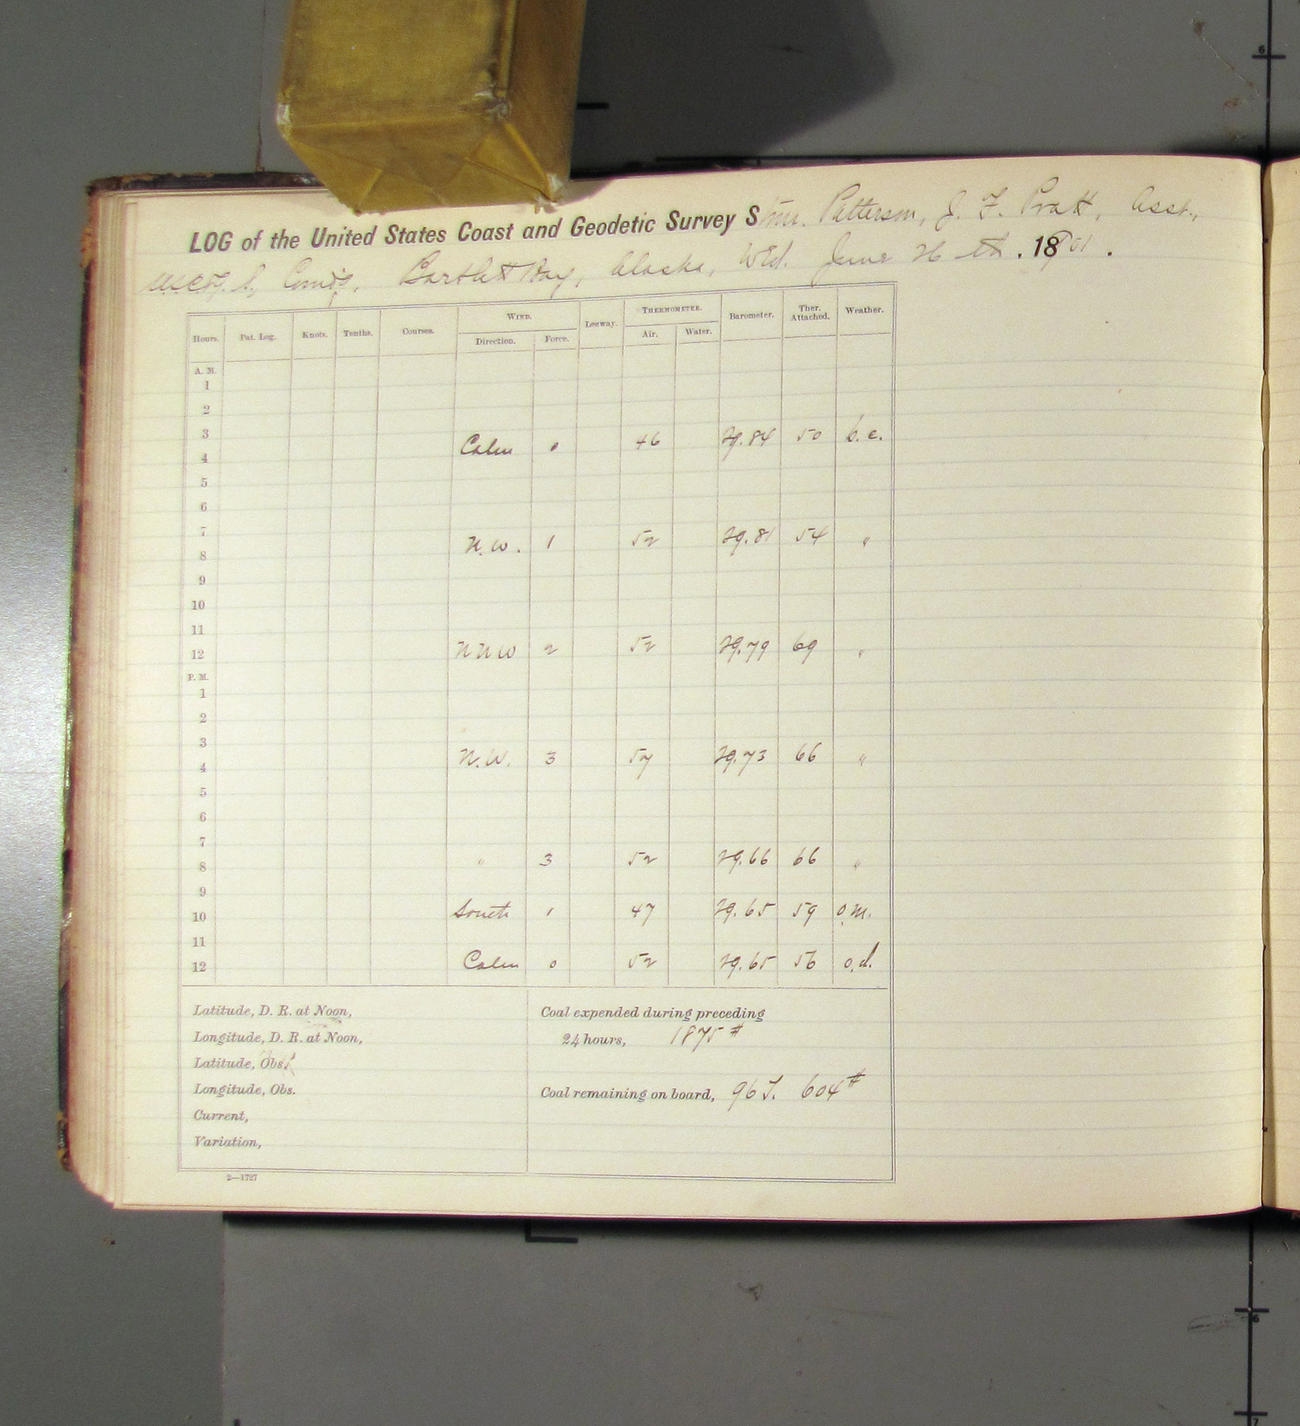 LOG of the United States Coast and Geodetic Survey Str. Patterson, J. F. Pratt, Asst.,
U.S.C.&G.S., Com'd'g, Bartlett Bay, Alaska, Wed. June 26th. 1901.
WIND. THERMOMETER.
Hours. Pat. Log. Knots. Tenths. Courses. Direction. Force. Leeway. Air. Water. Barometer. Ther. Attached. Weather.
A. M.
1
2
3
4 Calm 0 46 29.84 50 b.c.
5
6
7
8 N.W. 1 52 29.81 54 "
9
10
11
12 NNW 2 52 29.79 69 "
P. M.
1
2
3
4 N.W. 3 57 29.73 66 "
5
6
7
8 " 3 52 29.66 66 "
9
10 South 1 47 29.65 59 o.m.
11
12 Calm 0 52 29.65 56 o.d.
Latitude, D. R. at Noon,
Longitude, D. R. at Noon,
Latitude, Obs.
Longitude, Obs.
Current,
Variation,
Coal expended during preceding
24 hours, 1875 #
Coal remaining on board, 96 T. 604 #
2—1727
6
6
7